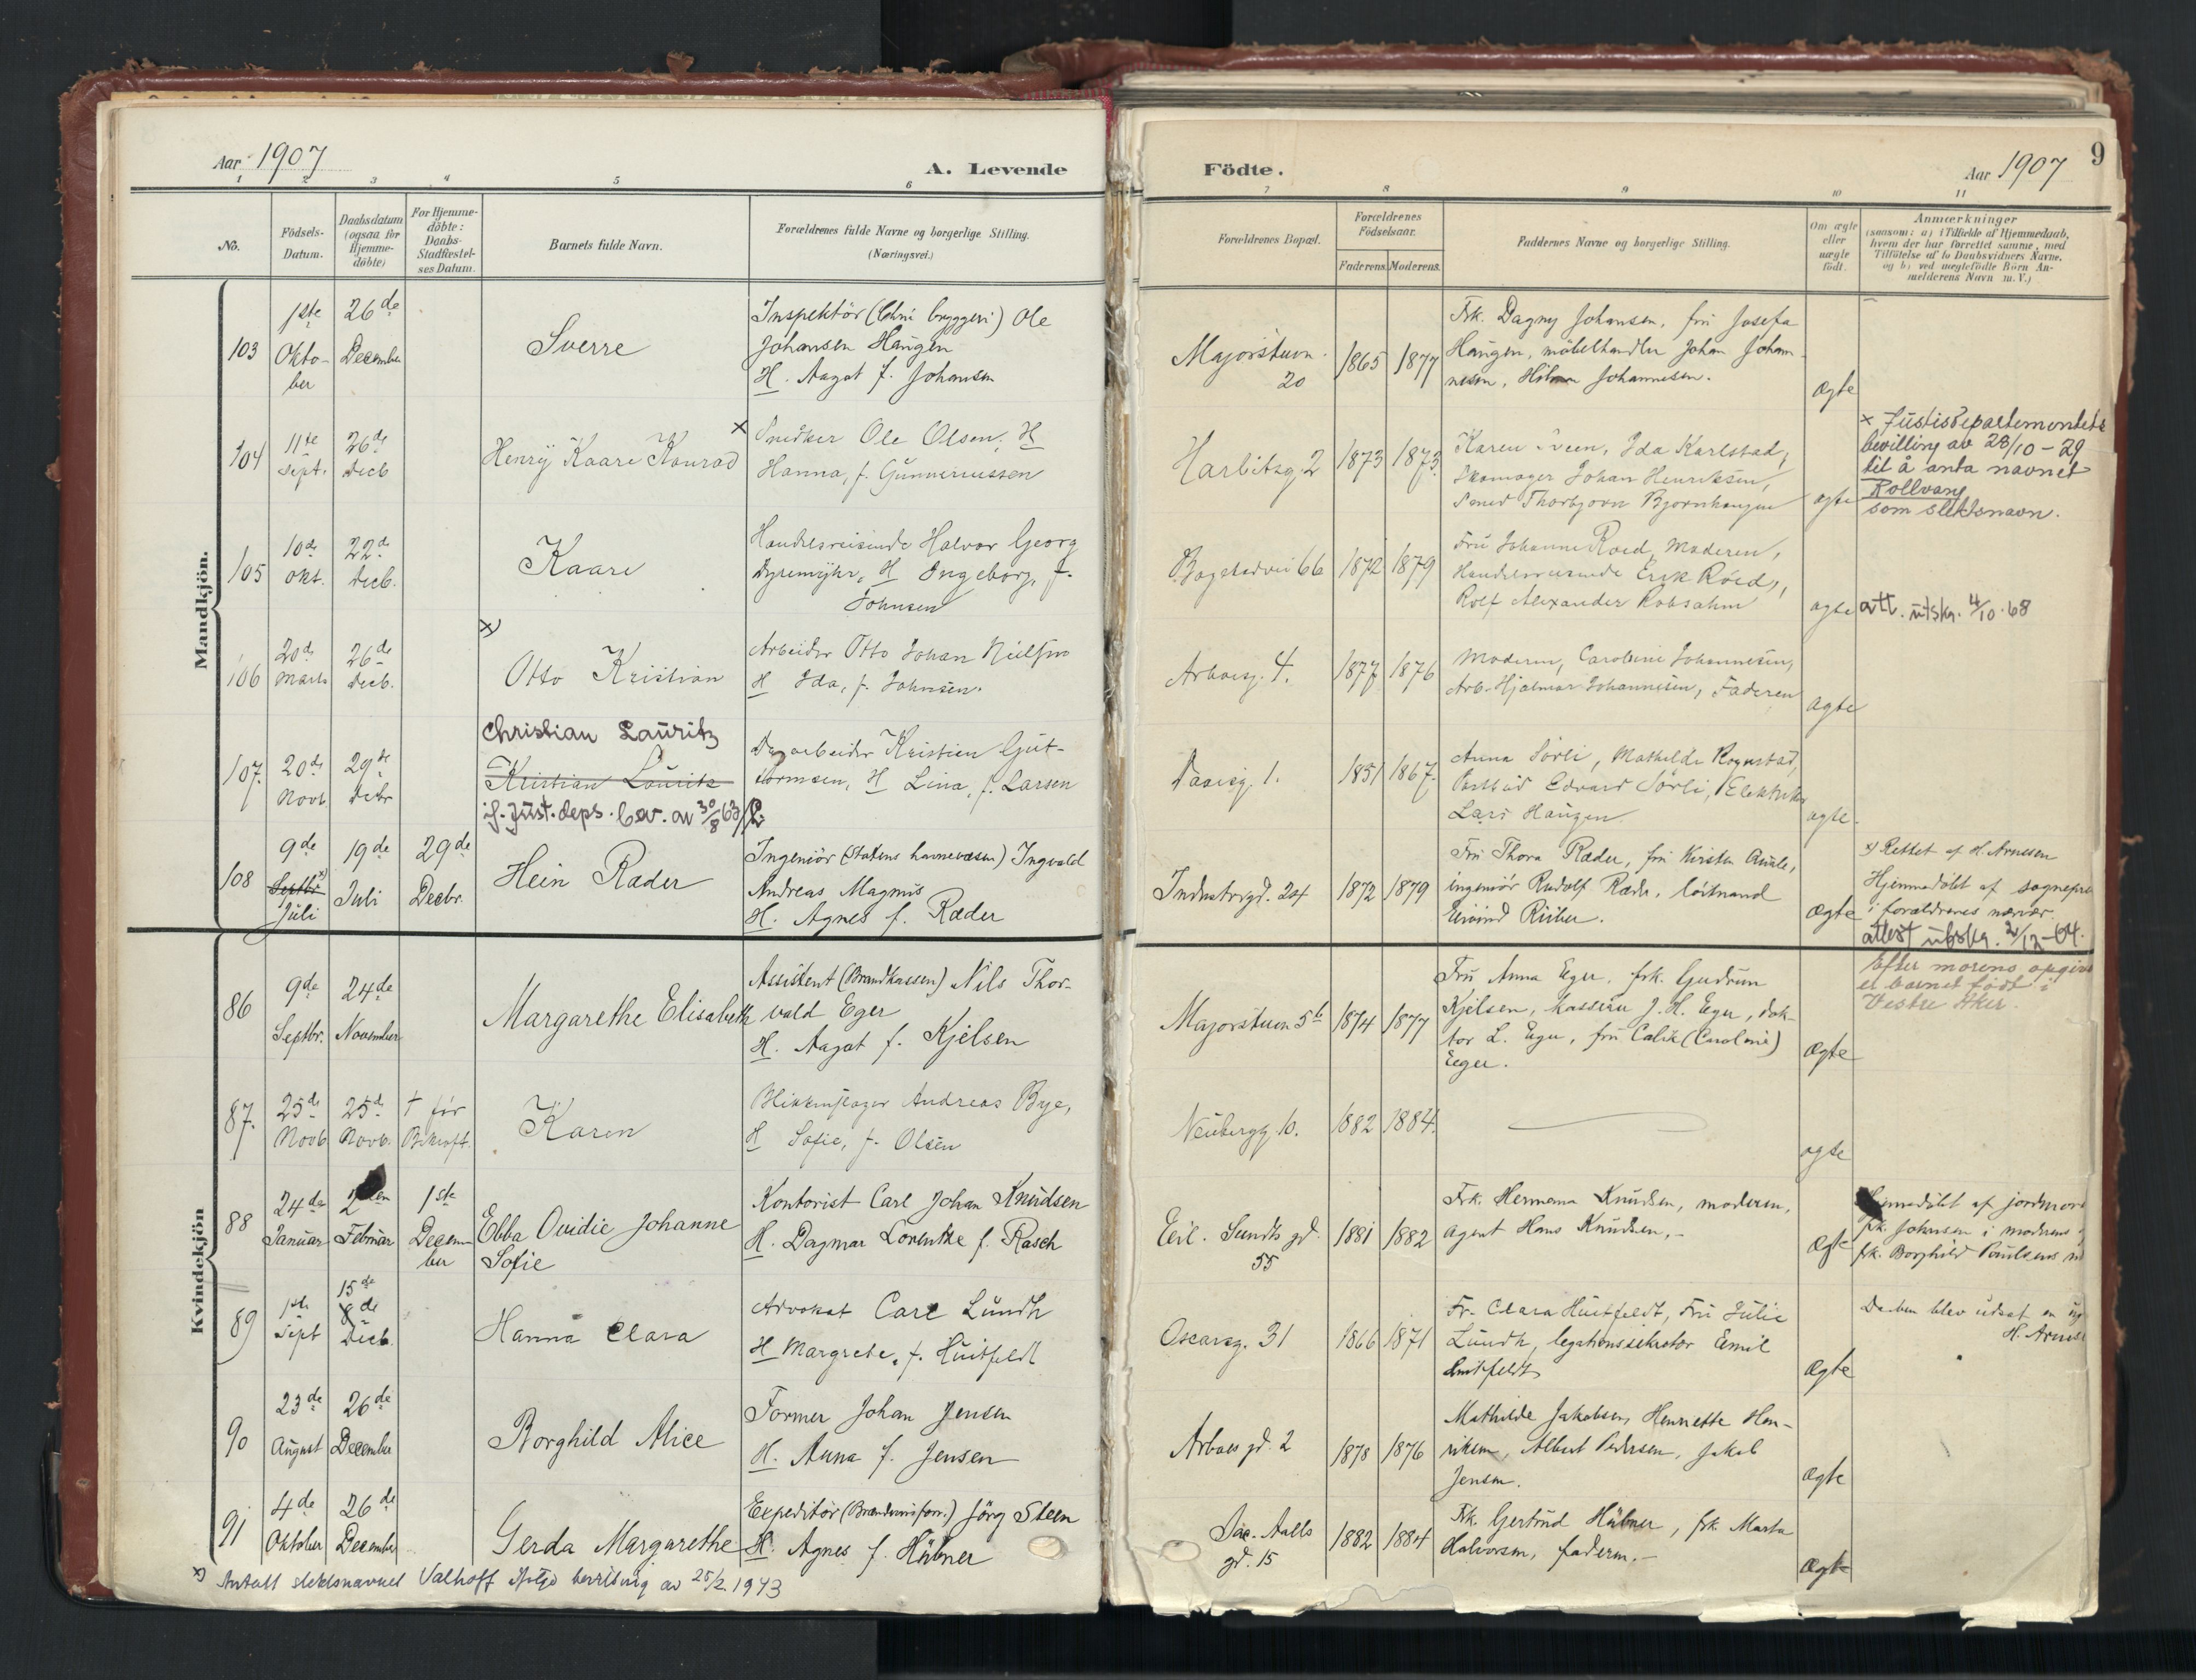 Aar 1907
A. Levende
1 2 3 4 5 6
No.
Födsels-
Datum.
Daabsdatum
(ogsaa for
Hjemme-
döbte)
For Hjemme-
döbte:
Daabs-
Stadfæstel-
ses Datum.
Barnets fulde Navn.
Forældrenes fulde Navne og borgerlige Stilling.
(Næringsvei.)
Mandkjön.
103
1ste
Okto-
ber
26de
December
Sverre
Inspektör ( bryggeri) Ole
Johansen Haugen
H. Aagot f. Johansen
104
11te
Sept.
26de
Decb
Henrÿ Kaare Konrad
× Snedker Ole Olsen, H
Hanna, f. Gunnariussen
105
10de
Okt.
22de
Decb.
Kaare
Handelsreisende Halvor Georg
Dyremyhr, H Ingeborg, f.
Johnsen
106
20de
Marts
26de
Decb.
×)
Otto Kristian
Arbeider Otto Johan Nielsen
H Ida, f. Johnsen.
107.
20de
Novb
29de
Decbr
Christian Lauritz
Kristian Lauritz
if. Just.deps. bev. av 30/8 63
Dagarbeider Kristian Gut-
tormsen, H Lina, f. Larsen
108
9de
Septbr x)
Juli
19de
Juli
29de
Decbr.
Hein Ræder
Ingeniör (Statens havnevæsen) Ingvald
Andreas Magnus
H. Agnes f. Ræder
Kvindekjön
86
9de
Septbr.
24de
November
Margarethe Elisabeth
Assistent (Brandkassen) Nils Thor-
vald Eger
H. Aagot f. Kjelsen
87.
25de
Novb
25de
Novb.
† før
Bekræft.
Karen
Blikkenslager Andreas Bye,
H Sofie, f. Olsen
88
24de
Januar
Februar
1ste
Decem-
ber
Ebba Ovidie Johanne
Sofie
Kontorist Carl Johan Knudsen
H. Dagmar Lorentze f. Rasch
89
1ste
Sept
15de
8de
Decb.
Hanna Clara
Advokat Carl Lundh
H Margrete, f. Huitfeldt
90
23de
August
26de
December
Borghild Alice
Former Johan Jensen
H. Anna f. Jensen
91
4de
Oktober
26de
December
Gerda Margarethe
Expeditör () Jörg Steen
H. Agnes f. Hübner
x) Antatt slektsnavnet Valhoff ifølge bevilling av 25/2 1943
Födte.
Aar 1907
9
7 8 9 10 11
Forældrenes Bopæl.
Forældrenes
Födselsaar.
Faderens. Moderens.
Faddernes Navne og borgerlige Stilling.
Om ægte
eller
uægte
födt.
Anmærkninger
(saasom: a) i Tilfælde af Hjemmedaab,
hvem der har forrettet samme, med
Tilföielse af to Daabsvidners Navne.
og b) ved uægtefödte Börn An-
melderens Navn m. V.)
Majorstuvn.
20
1865
1877
Frk. Dagny Johansen, fru Josefa
Haugen, möbelhandler Johan Johan-
nesen, Johannesen.
Ægte
Harbitzg. 2
1873
1873.
Karen Sveen, Ida Karlstad,
Skomager Johan Henriksen,
Thorbjørn Bjørnhaugen
ægte
× Justisdepartementets
bevilling av 28/10-29
til å anta navnet
Rollvang
som slektsnavn.
Bogstadvei 66
1872
1879
Fru Johanne Roed, Moderen,
Handelsreisende Erik Röed,
Rolf Alexander Robsahm
ægte
att. utskr. 4/10.68
Arboesg. 4.
1877
1876
Moderen, Caroline Johannesen,
Arb. Hjalmar Johannesen, Faderen
ægte
Daasg. 1.
1851
1867.
Anna Sörli, Mathilde Rognstad,
Postbud Edvard Sörli, Elektriker
Lars Haugen.
ægte.
Industrigd. 24
1872
1879
Fru Thora Ræder, fru Kirsten ,
ingeniör Rudolf Ræder, löitnand
Eivind Riiber.
Ægte
x) Rettet af H. Arnesen
Hjemmedöbt af sognepre
i forældrenes nærvær.
attest utskr. 2/12-64.
Majorstuen 5b
1874
1877
Fru Anna Eger, frk. Gudrun
Kjelsen, kasserer J. H. Eger, dok-
tor L. Eger, fru Calik (Caroline)
Eger.
Ægte
Efter morens opgive
er barnet födt i
Vestre Aker.
Neubergg. 10.
1882
1884.
ægte
Eil. Sundts gd.
55
1881
1882
Frk. Hermana Knudsen, moderen,
agent Hans Knudsen,-
Ægte
Hjemmedöbt af jordmor
frk. Johnsen i moderens
frk. Borghild Paulsens
Oscarsg. 31
1866
1871
Fr. Clara Huitfeldt, Fru Julie
Lundh, legationssekretær Emil
Huitfeldt
Ægte
Daaben blev udsat en
H. Arnes
Arboes gd. 2
1878
1876
Mathilde Jakobsen, Henriette Hen-
riksen, Albert Pedersen, Jakob
Jensen.
Ægte
Jac. Aalls
gd. 15
1882
1884
Frk. Gertrud Hübner, frk. Marta
Halvorsen, faderen.-
Ægte